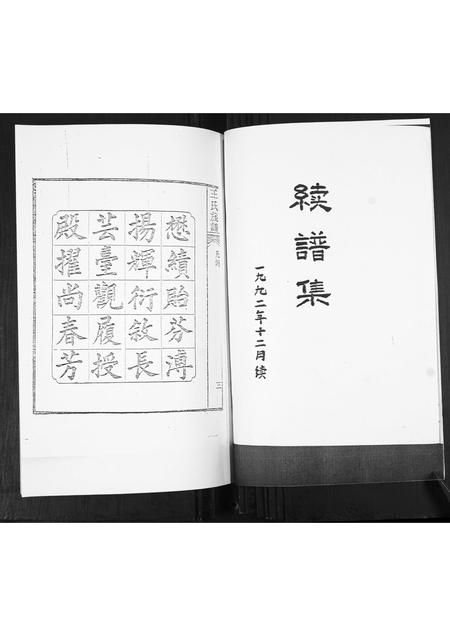 續譜集
一九九二年十二月续
王氏族譜
三
懋績貽芬溥
揚輝衍敘長
芸臺觀履授
殿擢尚春芳